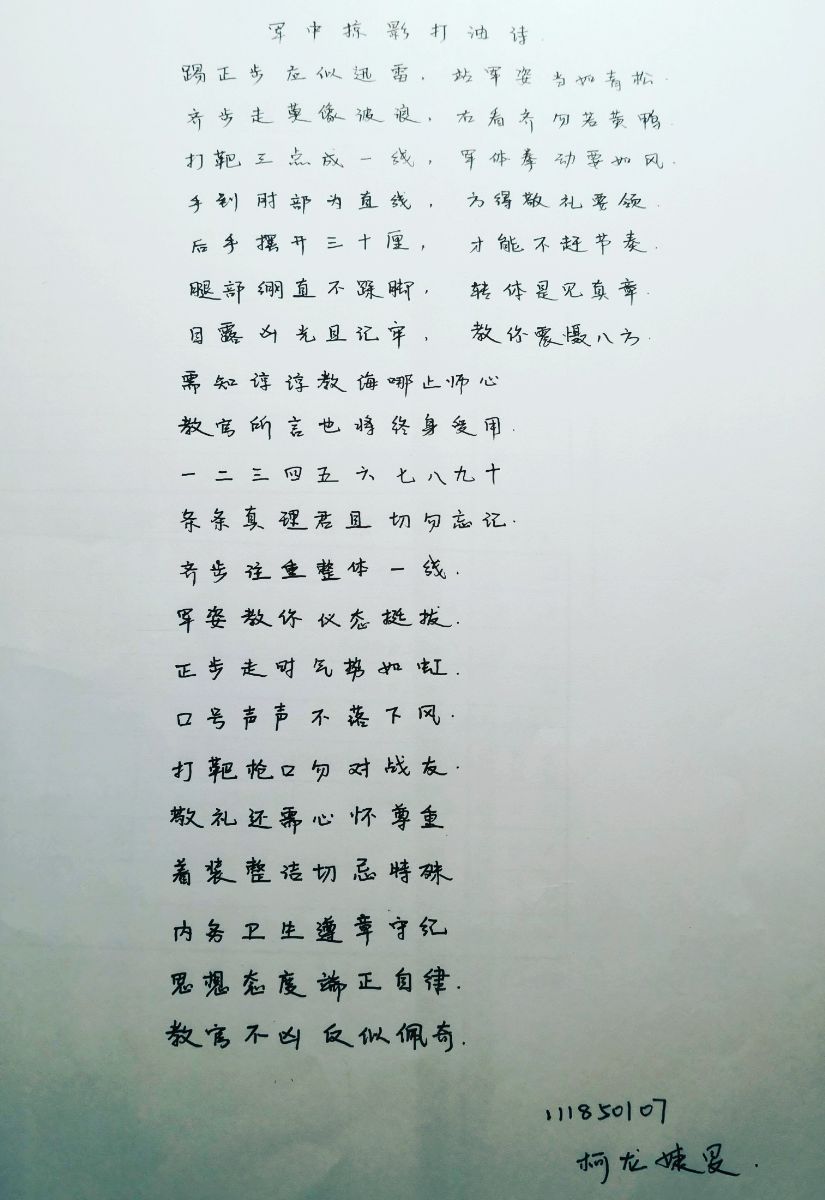 军中掠影打油诗
踢正步应似迅雷，站军姿当如青松.
齐步走莫像波浪，右看齐勿若黄鸭.
打靶三点成一线，军体拳动要如风.
手到肘部为直线，方得敬礼要领.
后手摆开三十厘，才能不赶节奏.
腿部绷直不跺脚，转体是见真章.
目露凶光且记牢，教你震慑八方.
需知谆谆教诲哪止师心
教官所言也将终身受用.
一二三四五六七八九十
条条真理君且切勿忘记.
齐步注重整体一线.
军姿教你仪态挺拔.
正步走时气势如虹.
口号声声不落下风.
打靶枪口勿对战友.
敬礼还需心怀尊重
着装整洁切忌特殊
内务卫生遵章守纪
思想态度端正自律.
教官不凶反似佩奇.
111850107
柯龙